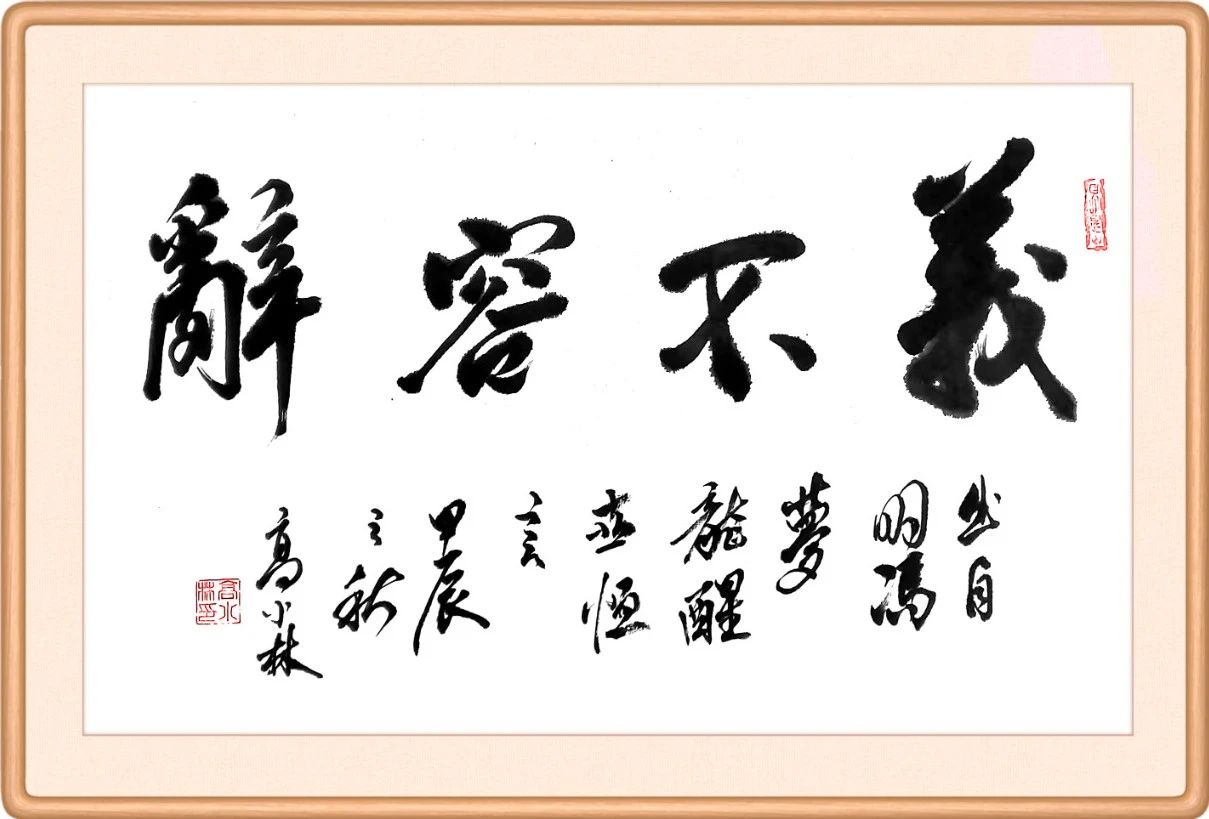 義不容辭
出自
明馮
夢
龍醒
世恒
言
甲辰
之秋
高小林
高小林印